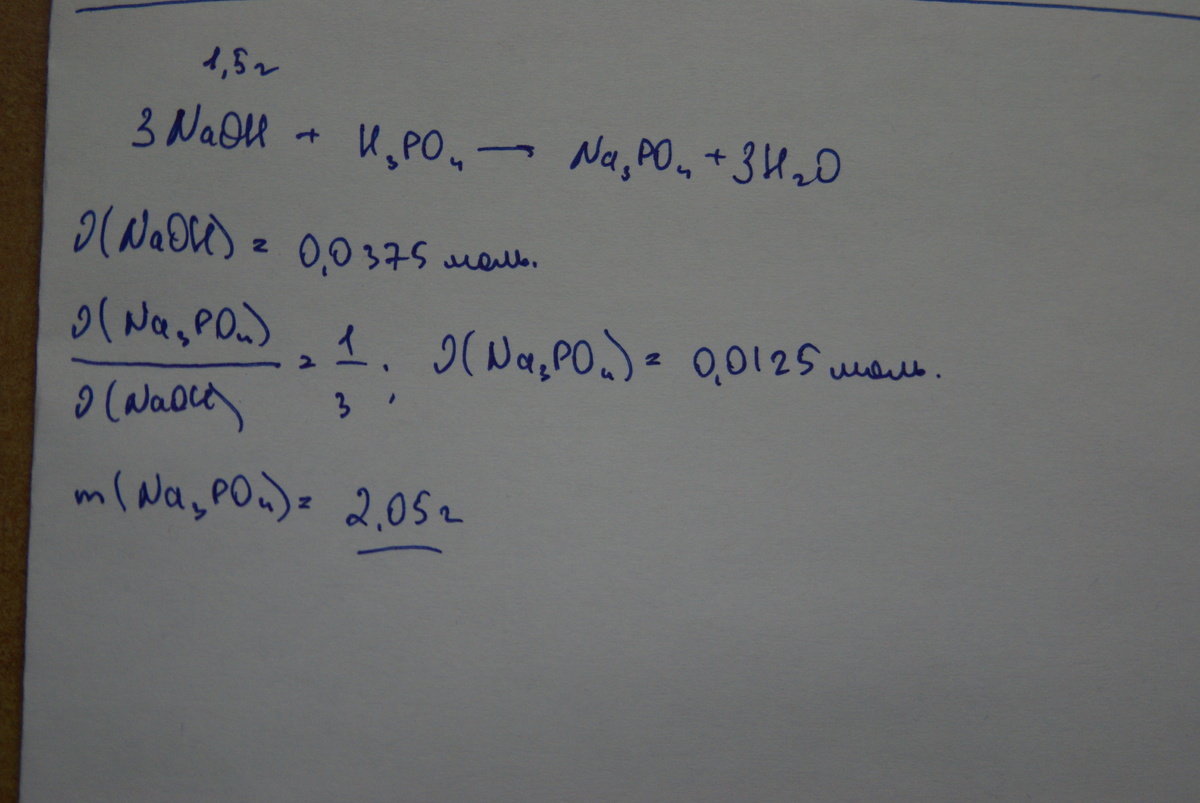 1,5г
3NaOH + H₃PO₄ → Na₃PO₄ + 3H₂O
ν(NaOH) = 0,0375 моль.
ν(Na₃PO₄) / ν(NaOH) = 1/3; ν(Na₃PO₄) = 0,0125 моль.
m(Na₃PO₄) = 2,05г